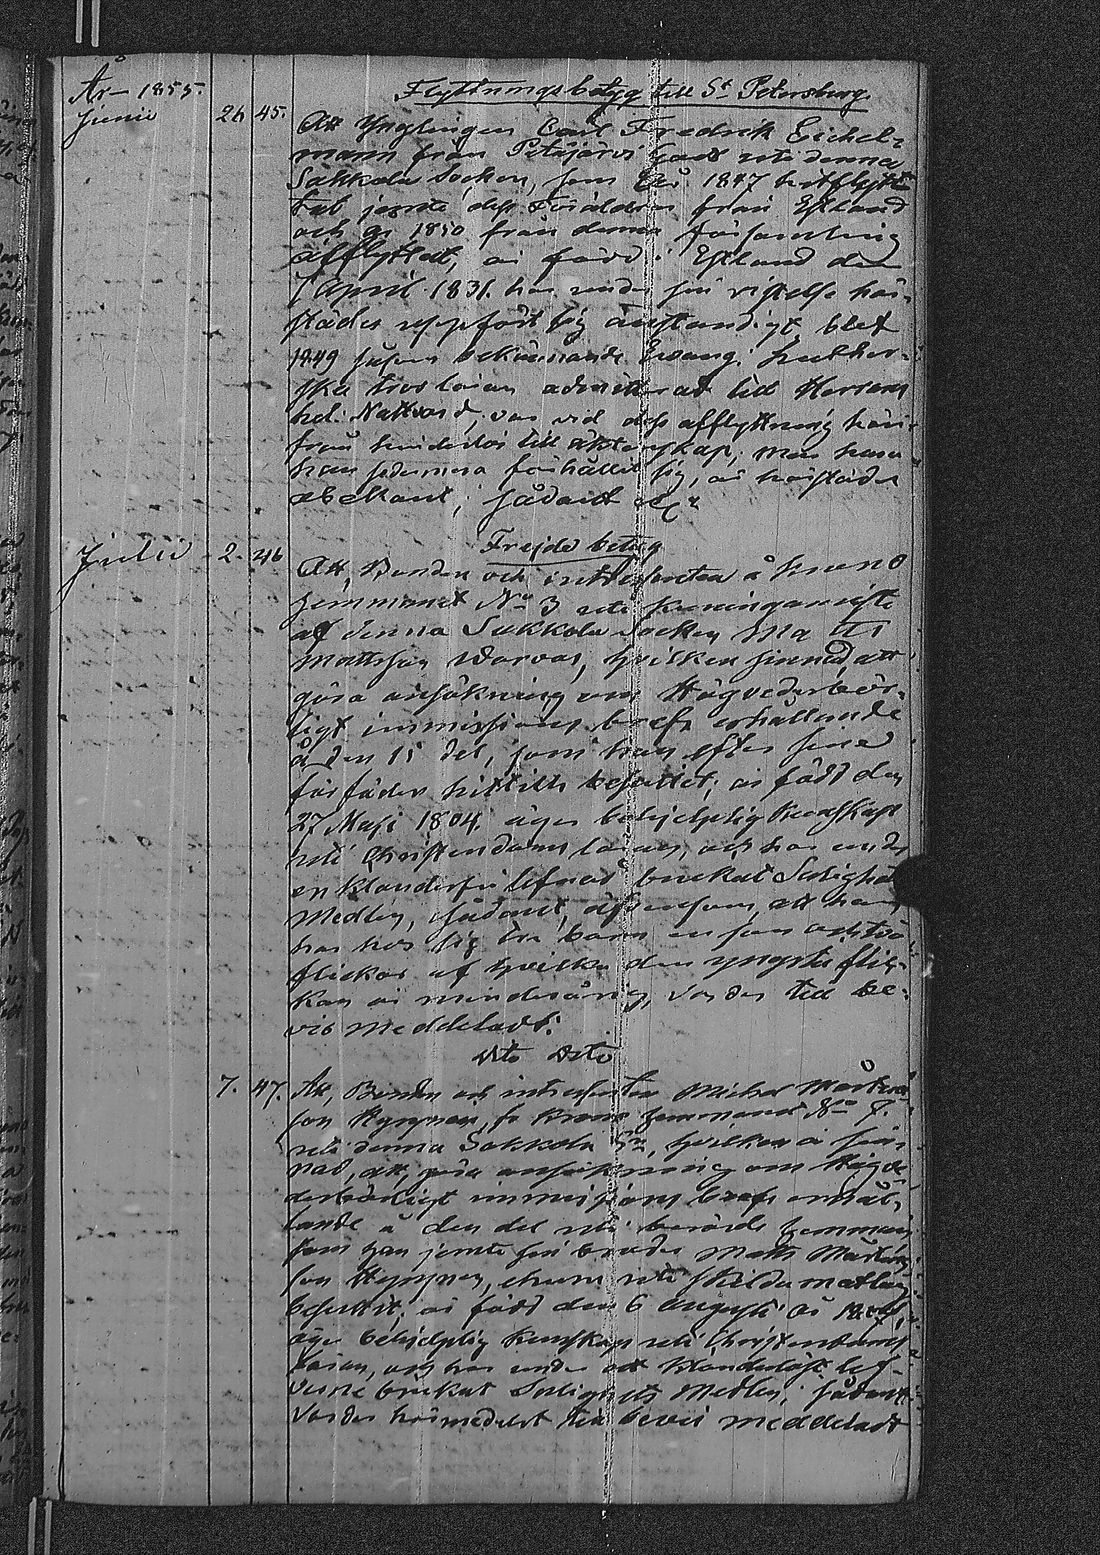 År 1855. Flyttningsbetyg till St Petersburg
Junii 26 45. Att Ynglingen Carl Fredrik Eichel-
mann från Petäjärvi hof uti denna
Sakkola Socken, som år 1847 hitflytt
tat jemte dess Föräldrar från Estland
och år 1850 från denna församling
afflyttat, är född i Estland den
7 April 1831. har under sin vistelse här-
städes uppfört sig anständigt, blef
1849 såsom bekännande Evang. Luther-
ska tros läran admitterad till Herrans
hel. Nattvard, var vid dess afflyttning här-
från hinderlös till äktenskap, men huru
han sedermera förhållit sig, är härstädes
obekant; sådant etc.
Frejde betyg
Julii 2. 46 Att, Bonden och intressenten å krono
hemmanet No 3 uti
af denna Sakkola Socken Matts
Mattsson, hvilken sinnad att
göra ansökning om Högvederbör-
ligt immissions brefs erhållande
å den del, som han efter sine
förfäder hittills besuttit, är född den
27 Maji 1804. äger behjelplig kunskap
uti Christendoms läran, och har under
en klanderfri lefnad brukat Salighets
Medlen, sådant, äfvensom, att han
har hos sig tre barn en son och två
flickor af hvilka den yngsta flic-
kan är minderårig, varder till be-
vis meddeladt.
Dito Dito
7. 47. Att, Bonden och intressenten Michel Mårtens
son Hyyppen, fr. Krono hemmanet No 7.
uti denna Sakkola Sn, hvilken är sin-
nad, att, göra ansökning om Högve
derbörligt immissions brefs erhål-
lande å den del uti berörde hemman
som han jemte sin broder Matts Mårtens
son Hyyppen, ehuru uti skilda matlag
besuttit, är född den 6 Augusti år
äger behjelplig kunskap uti Christendoms
läran, och har under ett klanderlöst lef-
verne brukat Salighets Medlen; sådant
varder härmedelst till bevis meddeladt